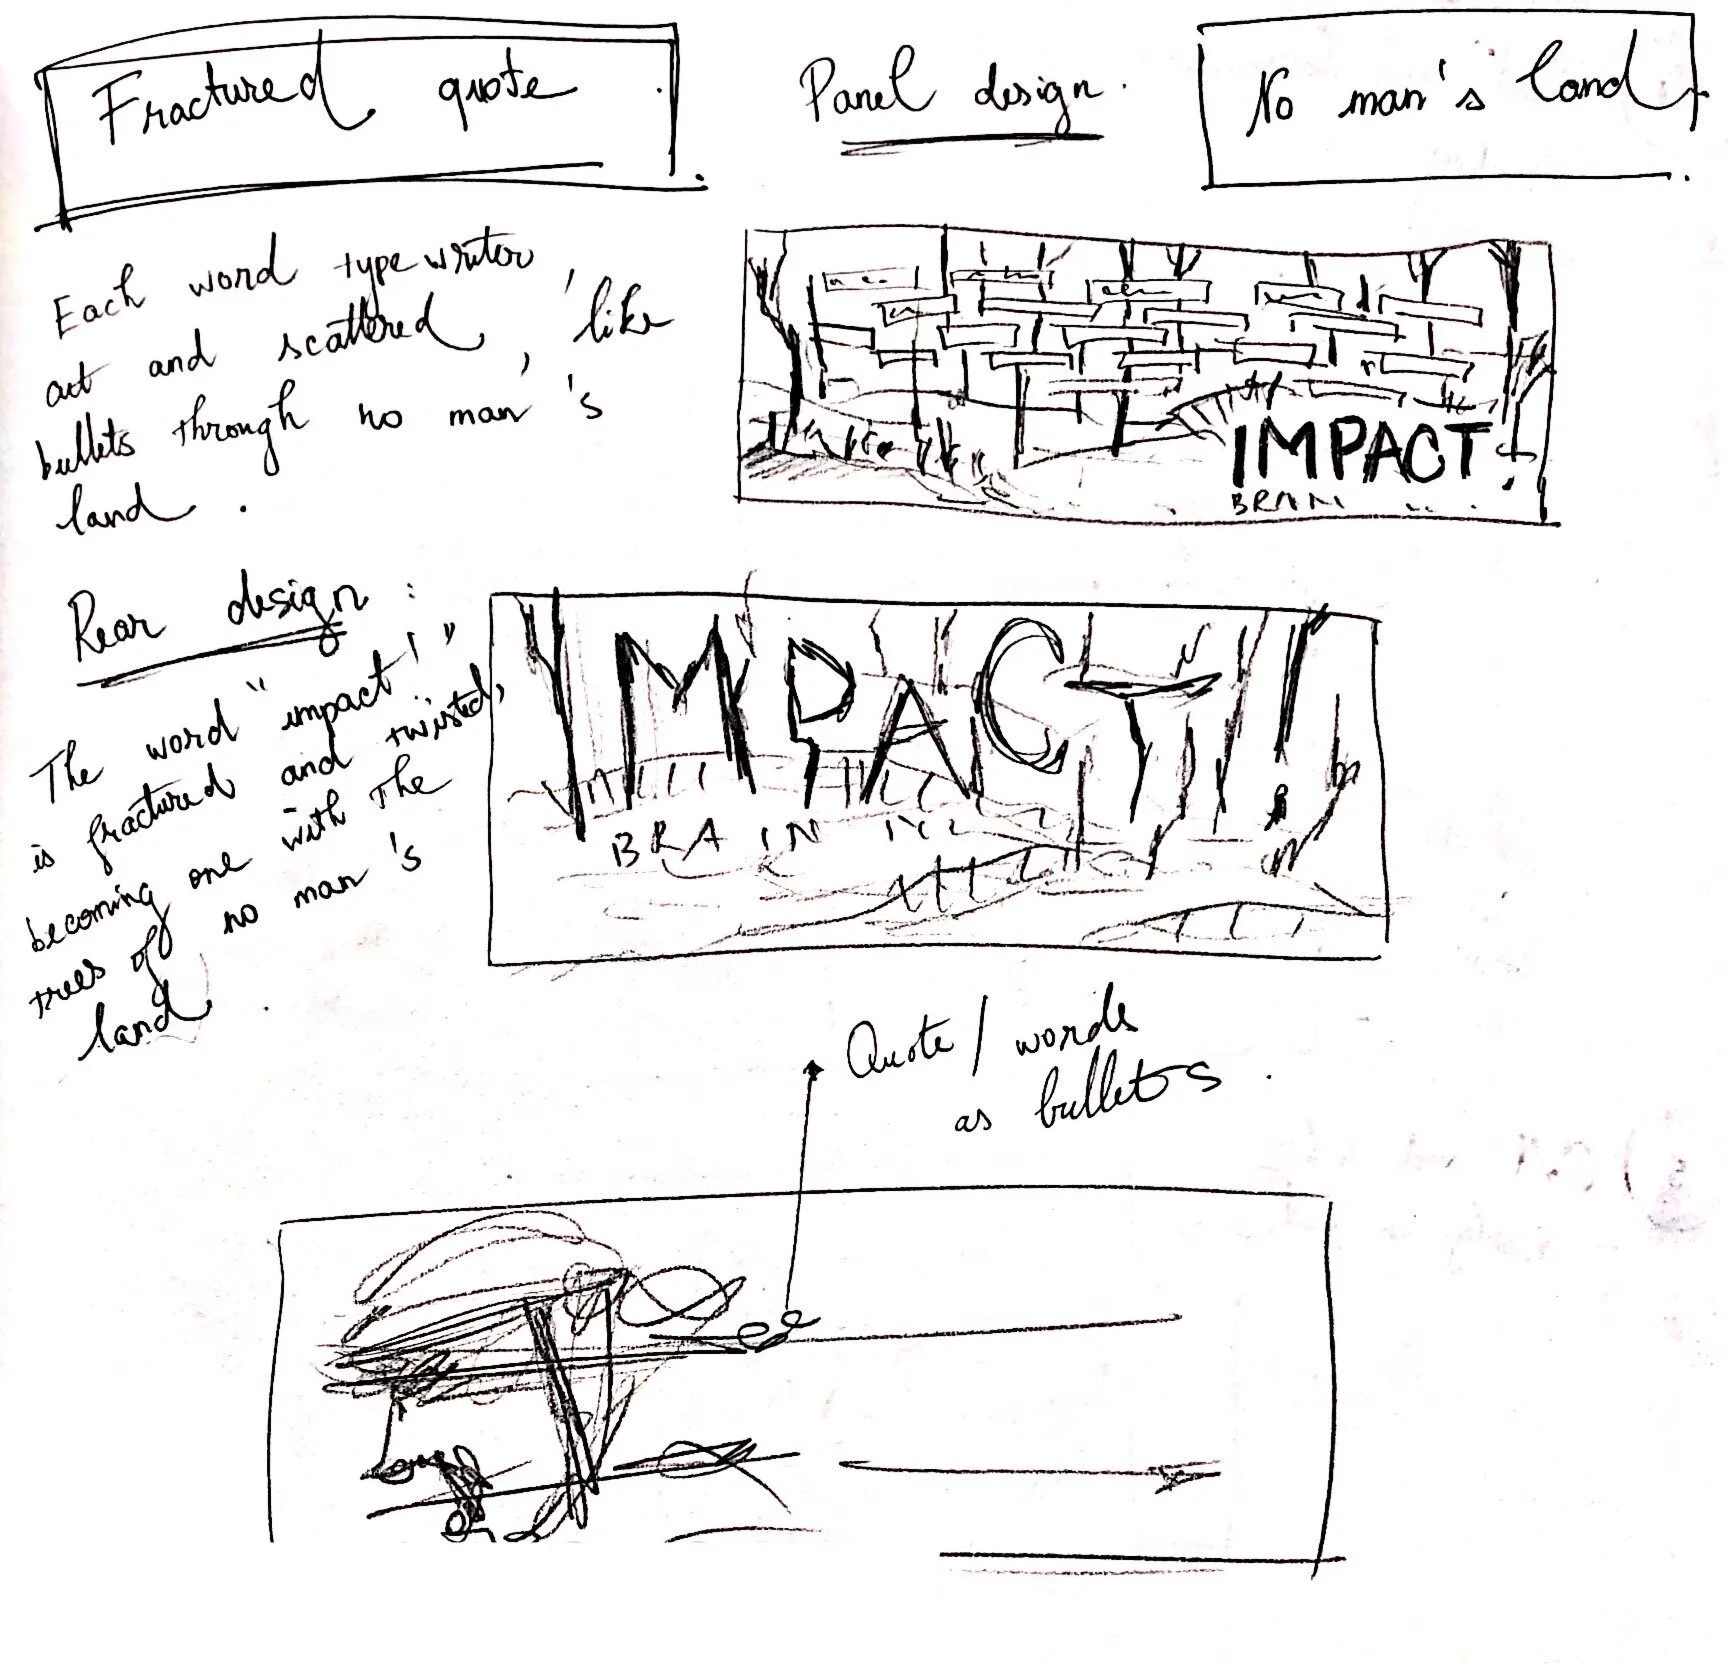 Fractured quote
Panel design.
No man's land
Each word type writer
and scattered, like
bullets through no man's
land.
IMPACT!
BRAIN
Rear design:
The word "impact!"
is fractured and twisted,
becoming one with the
trees of no man's
land.
IMPACT!
BRAIN
Quote/words
as bullets.